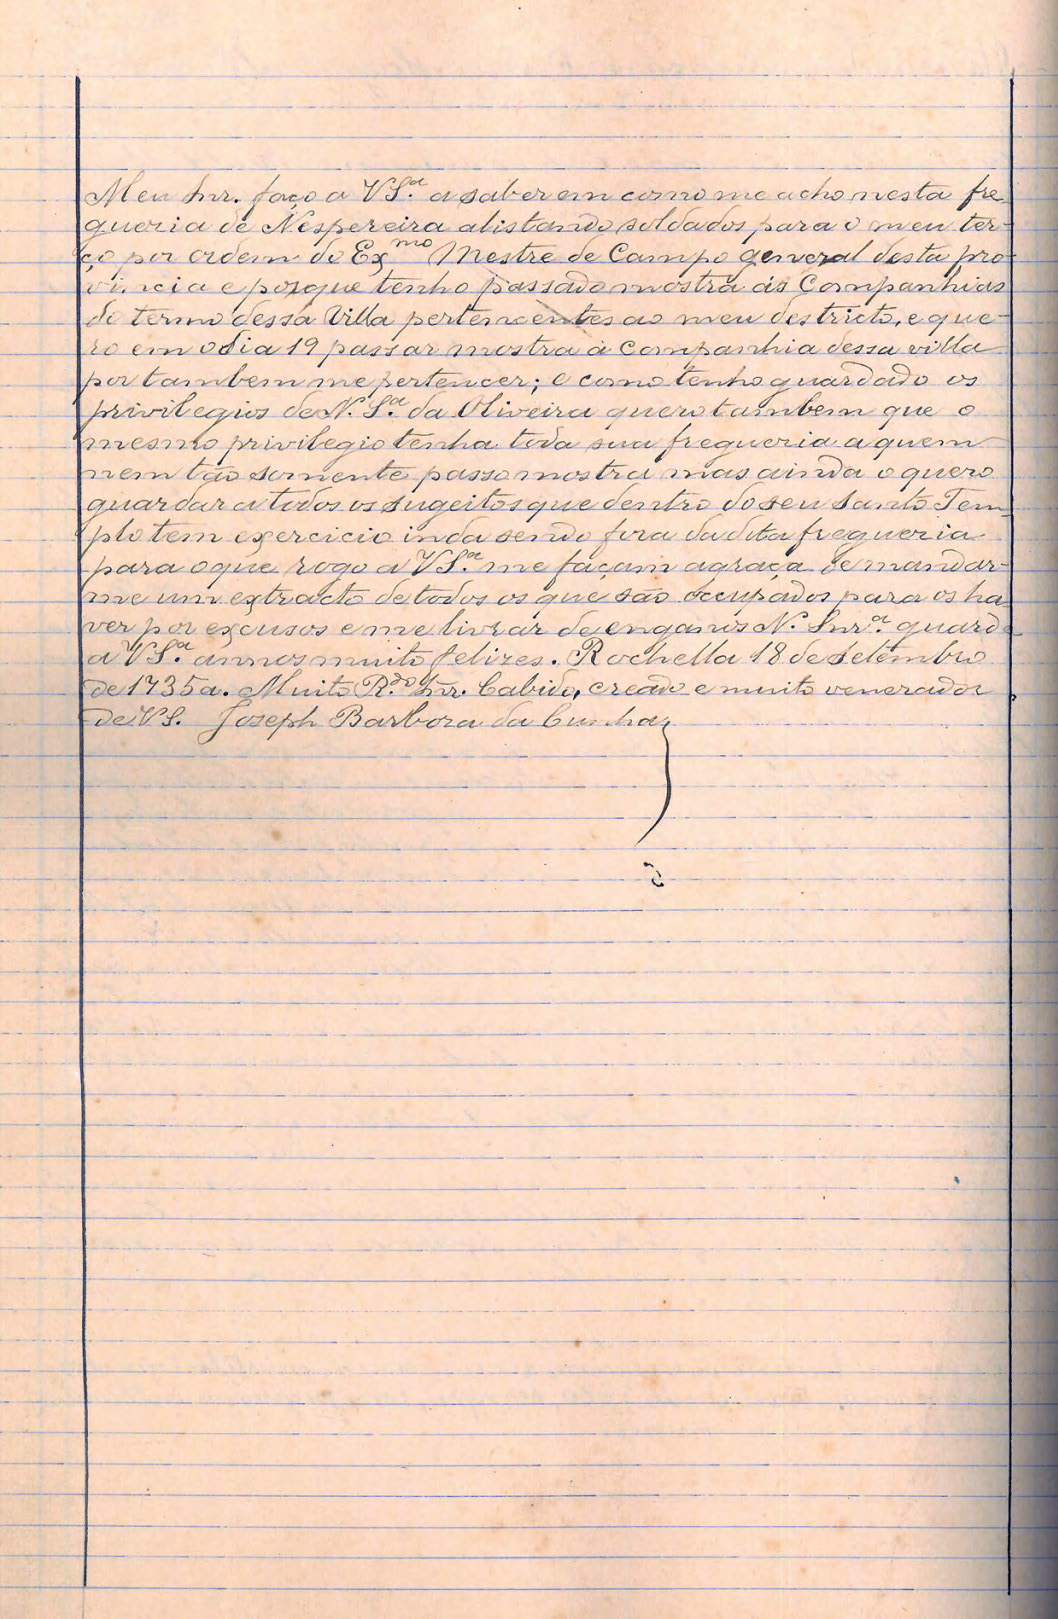 Meu Snr. faço a VS.ª a saber em como me acho nesta fre
gueria de Nespereira alistando soldados para o meu ter-
ço por ordem do Ex.mo Mestre de Campo general desta pro
vincia e porque tenho passado mostra ás Companhias
do termo dessa Villa pertencentes ao meu destricto, e que-
ro em o dia 19 passar mostra á Companhia dessa villa
por tambem me pertencer; e como tenho guardado os
privilegios de N. S.ª da Oliveira quero tambem que o
mesmo privilegio tenha toda sua fregueria a quem
nem tão somente passo mostra mas ainda o quero
guardar a todos os sugeitos que dentro do seu Santo Tem
plo tem exercicio inda sendo fora da dita fregueria
para o que rogo a VS.ª me façam a graça de mandar-
me um extracto de todos os que são occupados para os ha
ver por excusos e me livrar de enganos N.ª Snr.ª guarde
a VS.ª annos muito felizes. Rochella 18 de Setembro
de 1735 a. Muito R.do Snr. Cabido, creado e muito venerador
de VS. Joseph Barboza da Cunha